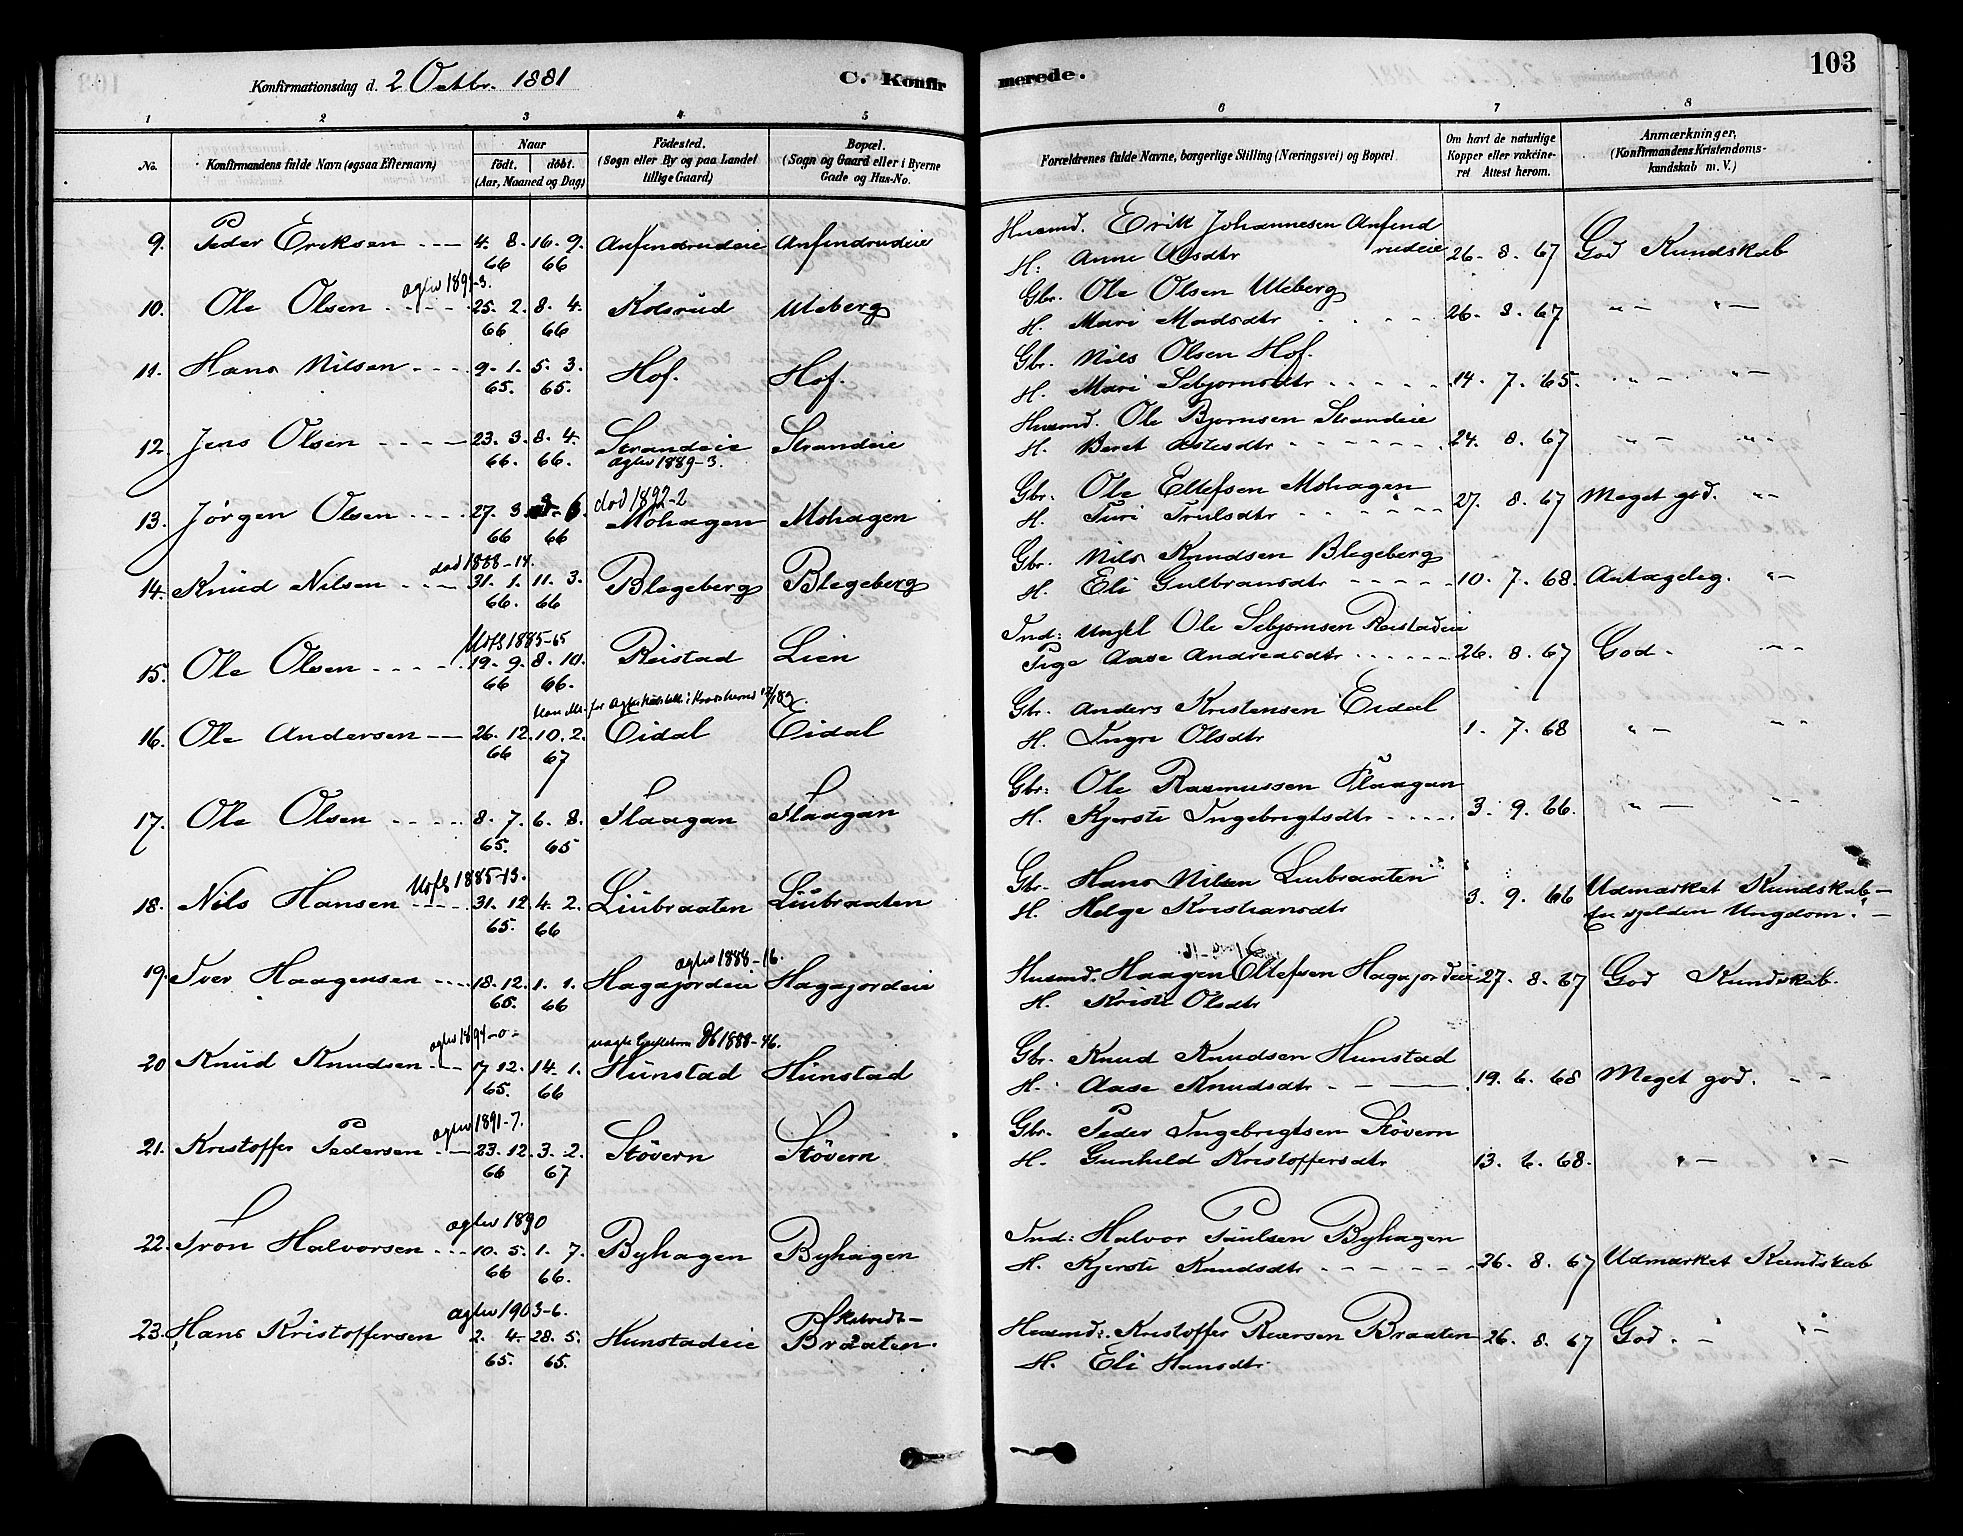 Konfirmationsdag d. 2 Octbr. 1881 C. Konfir merede. 103
1 2 3 4 5 6 7 8
No. Konfirmandens fulde Navn (ogsaa Efternavn) Naar Födt. döbt. (Aar, Maaned og Dag) Födested. (Sogn eller By og paa Landet tillige Gaard) Bopæl. (Sogn og Gaard eller i Byerne Gade og Hus-No. Forældrenes fulde Navne, borgerlige Stilling (Næringsvei) og Bopæl. Om havt de naturlige Kopper eller vakcineret Attest herom. Anmærkninger, (Konfirmandens Kristendomskundskab m. V.)
9. Peder Eriksen 4. 8. 66 16. 9. 66 Anfindrudeie Anfindrudeie Husmd. Erik Johannesen Anfindrudeie 26. 8. 67 God Kundskab
H: Anne Olsdtr
10. Ole Olsen 25. 2. 66 8. 4. 66 Kolsrud Uleberg Gbr. Ole Olsen Uleberg 26. 8. 67 " — " —
H. Mari Madsdtr
11. Hans Nilsen 9. 1. 65. 5. 3. 65. Hof. Hof. Gbr. Nils Olsen Hof. 14. 7. 65. " — " —
H. Mari Sebjørnsdtr
12. Jens Olsen 23. 3. 66. 8. 4. 66. Strandeie Strandeie Husmd. Ole Bjornsen Strandeie 24. 8. 67 " — " —
agler 1889-3.
H. Beret
13. Jørgen Olsen 27. 3. 66 6. 66 død 1892-2 Mohagen Mohagen Gbr. Ole Ellefsen Mohagen 27. 8. 67 Meget god. " —
H. Turi Trulsdtr
død 1888-14.
14. Knud Nilsen 31. 1. 66. 11. 3. 66 Blegeberg Blegeberg Gbr. Nils Knudsen Blegeberg 10. 7. 68. Antagelig. " —
H. Eli Gulbransdtr
1885-65
15. Ole Olsen 19. 9. 66 8. 10. 66. Reistad Lien Ind: Ungkl Ole Sebjornsen Reistadeie 26. 8. 67 God. " —
Pige Aase Andreasdtr
16. Ole Andersen 26. 12. 66 10. 2. 67 Eidal Eidal Gbr. Anders Kristensen Eidal 1. 7. 68 " — " —
H. Ingri Olsdtr
17. Ole Olsen 8. 7. 65. 6. 8. 65 Flaagan Flaagan Gbr: Ole Rasmussen Flaagan 3. 9. 66. " — " —
H. Kjersti Ingebrigtsdtr
1885-13.
18. Nils Hansen 31. 12. 65. 4. 2. 66 Liubraaten Liubraaten Gbr. Hans Nilsen Liubraaten 3. 9. 66 Udmærket Kundskab —
H. Helge Kristiansdtr En sjelden Ungdom. —
agler 1888-16.
19. Iver Haagensen 18. 12. 65. 1. 1. 66 Hagajordeie Hagajordeie Husmd. Haagen Ellefsen Hagajordeie 27. 8. 67 God Kundskab.
H. Kristi Olsdtr
20 Knud Knudsen 17 12. 65. 14. 1. 66 Hunstad Hunstad Gbr. Knud Knudsen Hunstad 19. 6. 68 Meget god. " —
H. Aase Knudsdtr
agler 1891-7.
21. Kristoffer Pedersen 23. 12. 66 3. 2. 67 Støvern Støvern Gbr. Peder Ingebrigtsen Støvern 13. 6. 68. " — " —
H. Gunhild Kristoffersdtr
agler 1890
22. Tron Halvorsen 10. 5. 66 1. 7. 66. Byhagen Byhagen Ind: Halvor Paulsen Byhagen 26. 8. 67 Udmærket Kundskab
H. Kjersti Knudsdtr
agler 1903-6.
23. Hans Kristoffersen 2. 4. 65. 28. 5. 65. Hunstadeie Braaten. Husmd: Kristoffer Reiersen Braaten 26. 8. 67 God. " —
H. Eli Hansdtr